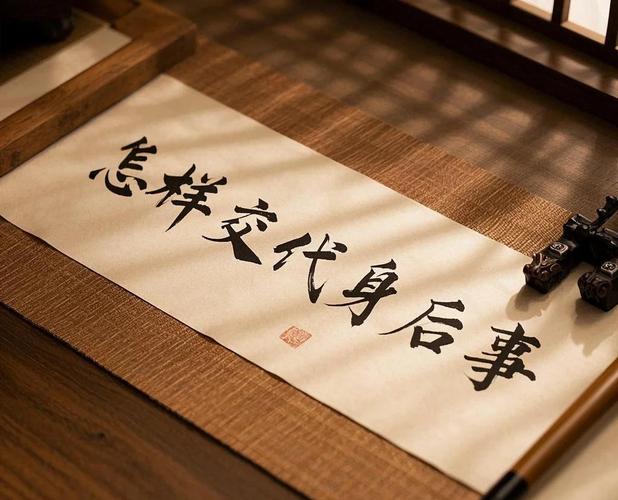 怎样交代身后事